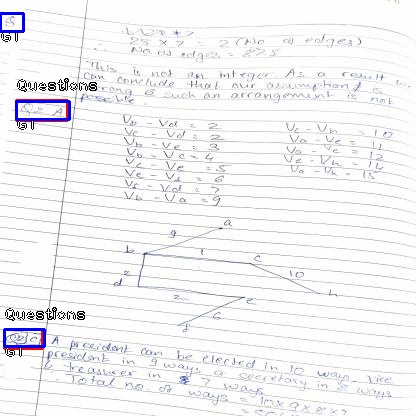 25 x 7 = 2 (No of edges)
∴ No of edges = 87.5
This is not an integer. As a result
can conclude that our assumption is
wrong & such an arrangement is not
possible.
Questions
GT
GT
Vb - Vd = 2
Vc - Vd = 2
Vb - Ve = 3
Vb - Vc = 4
Vc - Ve = 5
Ve - Vf = 6
Vf - Vd = 7
Vb - Va = 9
Vc - Vh = 10
Va - Ve = 11
Va - Vc = 12
Ve - Vh = 14
Va - Vh = 15
a
9
b
1
c
2
10
d
2
e
h
6
f
Questions
GT
A president can be elected in 10 ways, vice
president in 9 ways a secretary in 8 ways
& treasurer in 7 ways
Total no of ways = 10 x 9 x 8 x 7